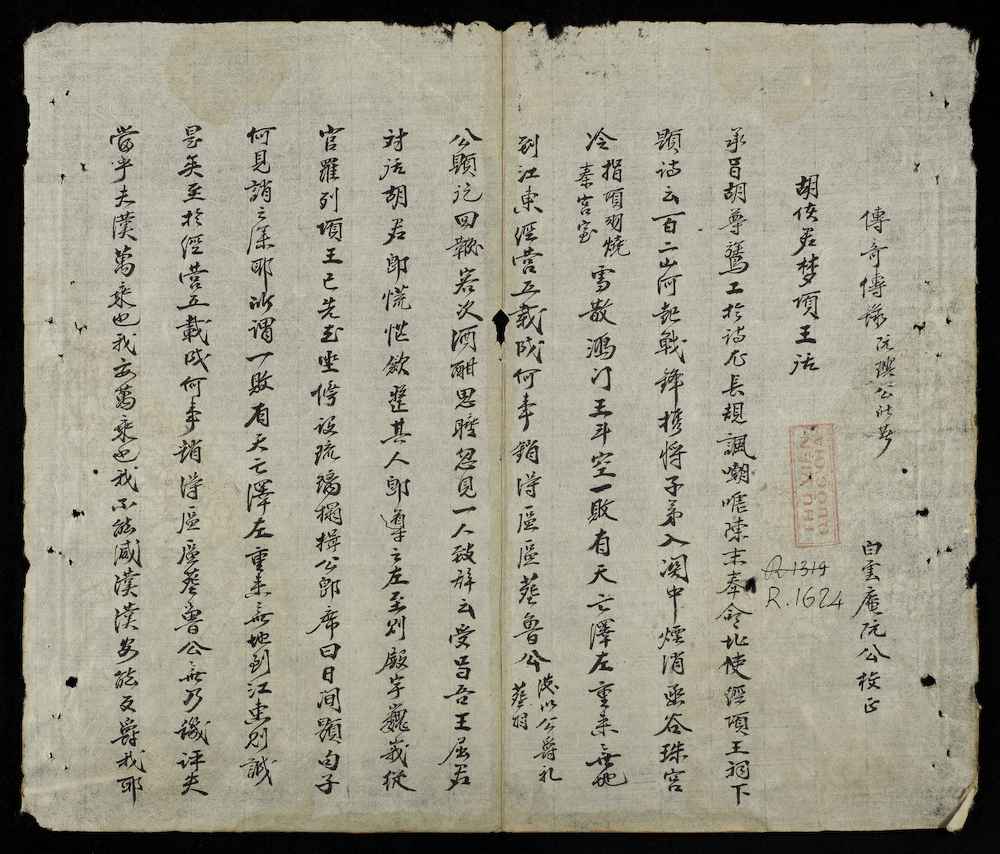 傳奇傳錄阮璵公所著 白雲庵阮公校正
胡侯君梦項王话
承旨胡尊鶩工於詩尤長規諷嘲陳末奉命北使經項王祠下
題詩云百二山河起戰鋒携將子弟入関中煙消函谷珠宮
冷 指項羽燒秦宮室 雪散鴻门玉斗空一敗有天亡澤左重來無地
到江東經营五载成何事銷得區區葬魯公 漢以公爵礼葬羽
公題訖回鞭客次酒酣思睡忽見一人致辞云受旨吾王屈君
对话胡君即慌忙斂整其人即導之左至則殿宇巍峩從
官羅列項王已先在坐傍设琉璃榻揖公即席曰日間題句子
何見誚之深耶所謂一敗有天亡澤左重來無地到江東則誠
是矣至於經营五載成何事銷得區區葬魯公無乃譏评失
當乎夫漢萬乘也我亦萬乘也我不能滅漢漢安能反爵我耶
THU VIEN
QUOC GIA
R.1314
R.1624